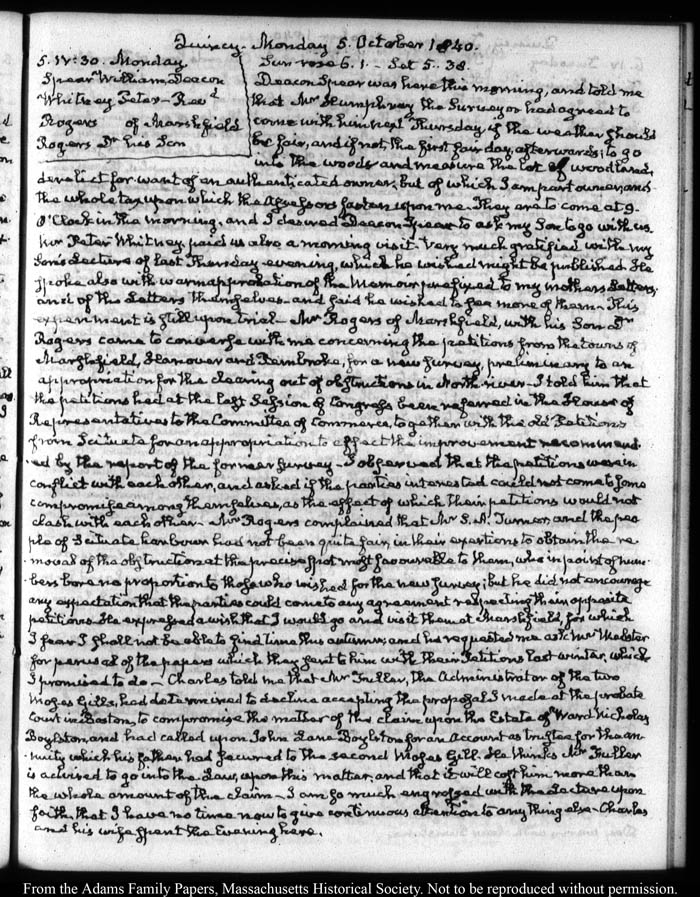 Quincy. Monday 5. October 1840.
5. IV:30. Monday.
Spear William Deacon
Whitney Peter - Revd
Rogers of Marshfield
Rogers Dr his Son
Sun rose 6. 1. - Set 5. 38.
Deacon Spear was here this morning, and told me
that Mr Humphrey the Surveyor had agreed to
come with him next Thursday if the weather should
be fair, and if not, the first fair day, afterwards, to go
into the woods and measure the lot of woodland,
derelict for want of an authenticated owner, but of which I am part owner, and
the whole tax upon which the Assessors fasten upon me. They are to come at 9.
O'Clock in the morning, and I desired Deacon Spear to ask my Son to go with us.
Mr Peter Whitney paid us also a morning visit. Very much gratified with my
Son's Lecture of last Thursday evening, which he wished might be published. He
spoke also with warm approbation of the Memoir prefixed to my mothers Letters,
and of the Letters themselves and said he wished to see more of them. This
experiment is still upon trial. Mr Rogers of Marshfield, with his Son Dr
Rogers came to converse with me concerning the petitions from the towns of
Marshfield, Hanover and Pembroke, for a new survey, preliminary to an
appropriation for the clearing out of obstructions in North river - I told him that
the petitions had at the last Session of Congress been referred in the House of
Representatives to the Committee of Commerce, together with the old Petitions
from Scituate for an appropriation to effect the improvement recommend
ed by the report of the former survey - I observed that the petitions were in
conflict with each other, and asked if the parties interested could not come to some
compromise among themselves, as the effect of which their petitions would not
clash with each other - Mr Rogers complained that Mr S. A. Turner, and the peo
ple of Scituate harbour had not been quite fair, in their exertions to obtain the re
moval of the obstruction at the precise spot most favourable to them, who in point of num
bers bore no proportion to those who wished for the new survey; but he did not encourage
any expectation that the parties could come to any agreement respecting their opposite
petitions. He expressed a wish that I would go and visit them at Marshfield, for which
I fear I shall not be able to find time this autumn; and he requested me ask Mr Webster
for perusal of the papers which they sent to him with their Petitions last winter, which
I promised to do - Charles told me that Mr Fuller, the Administrator of the two
Moses Gills, had determined to decline accepting the proposal I made at the probate
Court in Boston, to compromise the matter of the claim upon the Estate of Ward Nicholas
Boylston, and had called upon John Lane Boylston for an Account as trustee for the an
nuity which his father had secured to the second Moses Gill. He thinks Mr Fuller
is advised to go into the Law, upon this matter, and that it will cost him more than
the whole amount of the claim - I am so much engrossed with the Lecture upon
faith, that I have no time now to give continuous attention to any thing else - Charles
and his wife spent the Evening here.
From the Adams Family Papers, Massachusetts Historical Society. Not to be reproduced without permission.